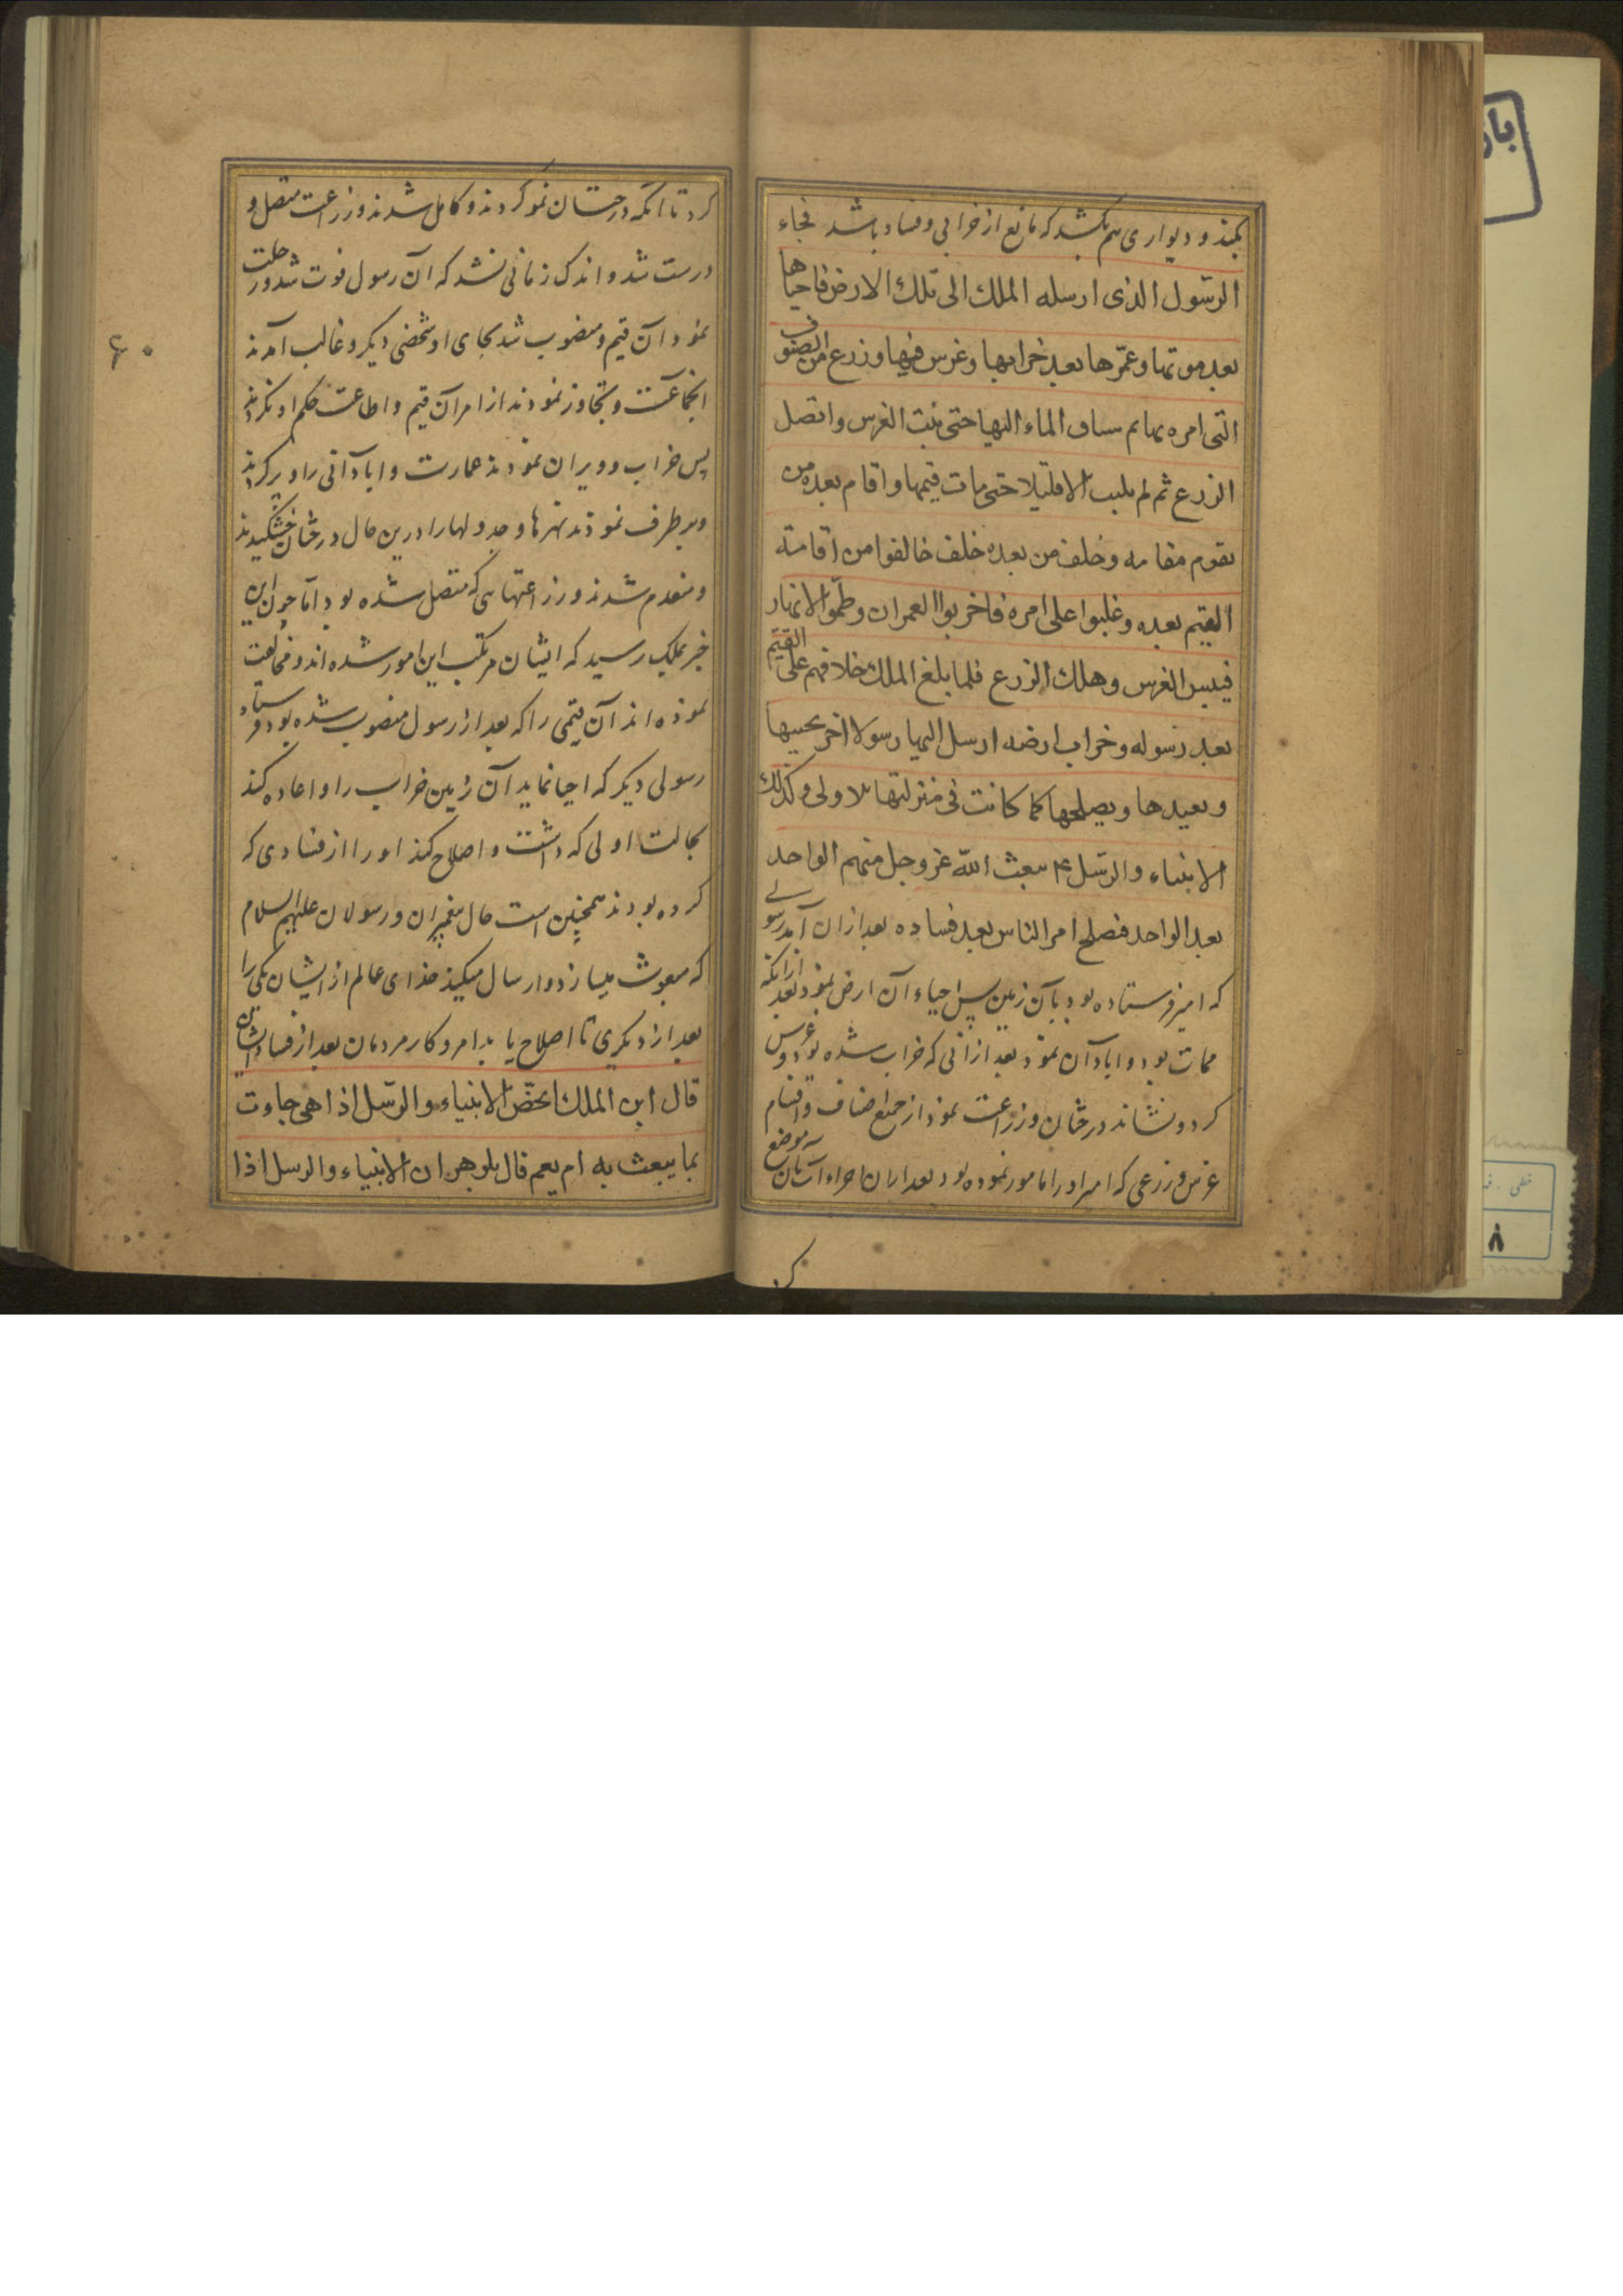 بکند و دیواری هم بکشد که مانع از خرابی و فساد باشد فجاء
الرسّول الذی ارسله الملک الی تلک الارض فاحیاها
بعد موتها و عمّرها بعد خرابها و غرس فیها و زرع من الصنوف
التی امره بها ثم ساق الماء الیها حتی نبت الغرس و اتصل
الزرع ثم لم یلبث الا قلیلا حتی مات قیمها و اقام بعده من
یقوم مقامه و خلف من بعده خلف خالفوا من اقامة
القیم بعده و غلبوا علی امره فاخربوا العمران و طمّوا الانهار
فیبس الغرس و هلک الزرع فلما بلغ الملک خلافهم علی القیّم
بعد رسوله و خراب ارضه ارسل الیها رسولا اخر یحییها
و یعیدها و یصلحها کما کانت فی منزلتها الاولی و کذلک
الانبیاء و الرسّل ع یبعث اللّه عز و جل منهم الواحد
بعد الواحد فیصلح امر الناس بعد فساده بعد از ان آمد رسولی
که امیر فرستاده بود بآن زمین پس احیاء آن ارض نمود بعد از آنکه
ممات بود و ابادآن نمود بعد از آنی که خراب شده بود و غرس
کرد و نشاند درختان و زراعت نمود از جمیع اصناف و اقسام
غرس و زرعی که امیر او را مامور نموده بود بعد از ان اجراء آب بآن موضع
کر
کرد تا آنکه درختان نمو کردند و کامل شدند و زراعت متصل و
درست شد و اندک زمانی نشد که آن رسول فوت شد و رحلت
نمود آن قیم و منصوب شد بجای او شخصی دیگر و غالب آمدند
انجماعت و تجاوز نمودند از امر آن قیم و اطاعت حکم او نکردند
پس خراب و ویران نمودند عمارت و ابادآنی را و پر کردند
و بر طرف نمودند نهرها و جدولها را درین حال درختان خشکیدند
و منعدم شدند و زراعتهایی که متصل شده بود اما چون این
خبر بملک رسید که ایشان مرتکب این امور شده اند و مخالفت
نموده اند آن قیمی را که بعد از رسول منصوب شده بود فرستاد
رسولی دیگر که احیا نماید آن زمین خراب را و اعاده کند
بحالت اولی که داشت و اصلاح کند او را از فسادی که
کرده بودند همچنین است حال پیغمبران و رسولان علیهم السلام
که مبعوث میسازد و ارسال میکند خدای عالم از ایشان یکی را
بعد از دیگری تا اصلاح یابد امر و کار مردمان بعد از فساد ایشان
قال ابن الملک ایخصّ الانبیاء و الرسّل اذا هی جاءت
بما یبعث به ام یعم قال بلوهر ان الانبیاء و الرسل اذا
۶۰
خطی
۸